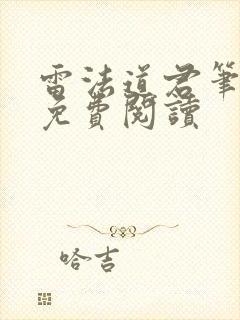 雷法道君筆
免費閱讀
哈吉